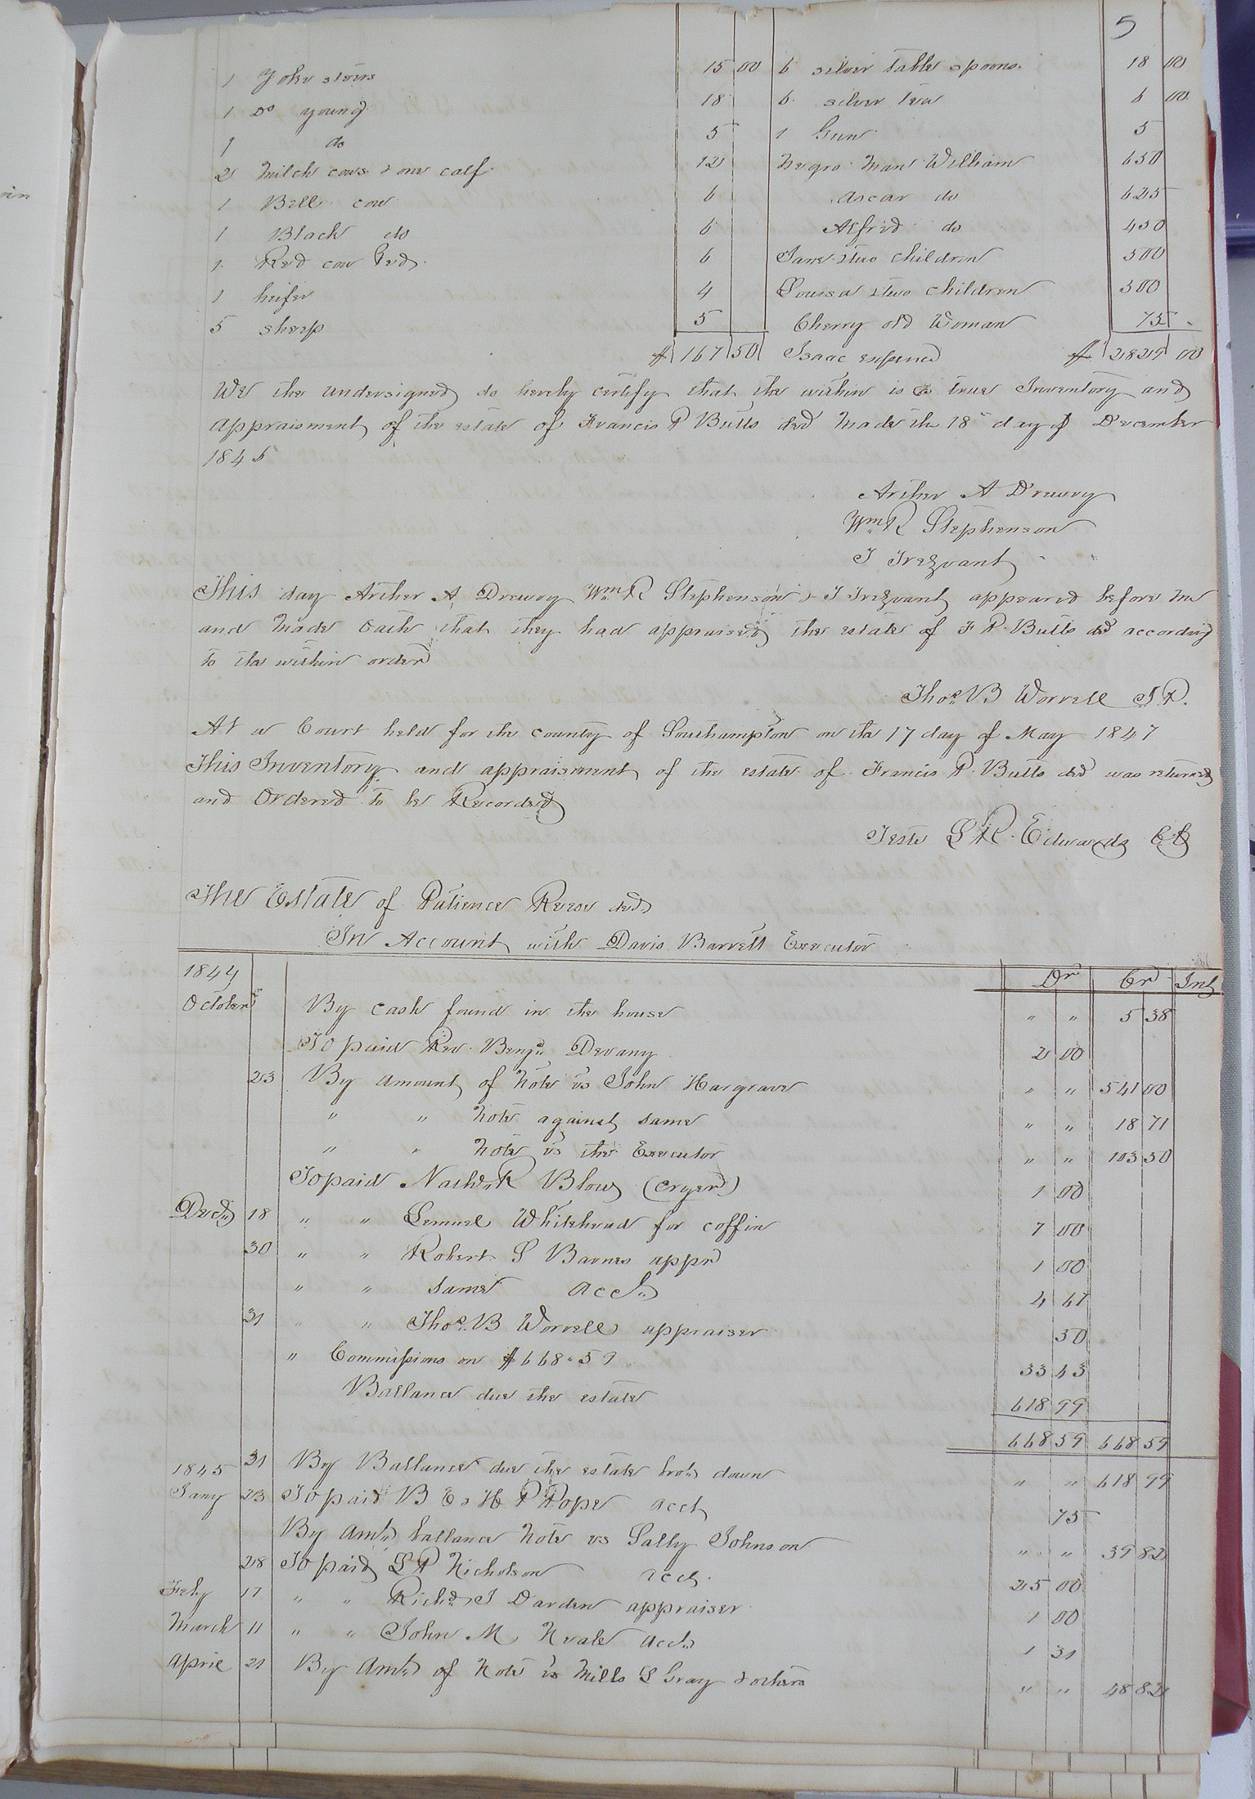 5
1 Yoke steers 15 00 6 silver table spoons 18 00
1 Do young 18 6 silver tea 6 00
1 do 5 1 Gun 5
2 Milch cows & one calf 12 Negro Man William 650
1 Bell cow 6 Oscar do 625
1 Black do 6 Alfred do 450
1 Red cow 6 Jane & two children 500
1 heifer 4 Louisa & two children 500
5 sheep 5 Cherry old Woman 75
$ 167 50 Isaac $ 2829 00
We the undersigned do hereby certify that the within is a true Inventory and
appraisment of the estate of Francis P Butts decd Made the 18th day of December
1845
Archer A Drewry
Wm R Stephenson
J Trezvant
This day Archer A Drewry Wm R Stephenson & J Trezvant appeared before me
and Made Oath that they had appraised the estate of F P Butts decd according
to the within order
Thos B Worrell J.P.
At a Court held for the county of Southampton on the 17 day of May 1847
This Inventory and appraisment of the estate of Francis P. Butts decd was returned
and Ordered to be Recorded
Teste L R Edwards CC
The Estate of Patience Reese decd
In Account with Davis Barrett Executor
1844 Dr Cr Int
October By cash found in the house " " 5 38
To paid Rev. Benjn Devany 2 00
23 By amount of Note vs John Hargrave " " 541 00
" " Note against same " " 18 71
" " Note vs the Executor " " 103 50
To paid Nathl R Blow (cryer) 1 00
Decr 18 " " Lemuel Whitehead for coffin 7 00
30 " " Robert S Barnes appr 1 00
" " same acct 4 67
31 " " Thos. B Worrell appraiser 50
" Commissions on $668.59 33 43
Ballance due the estate 618 99
668 59 668 59
31 By Ballance due the estate brot down " " 618 99
1845
Jany 23 To paid B E & H P Pope acct 75
By Amt ballance Note vs Sally Johnson " " 39 82
28 To paid L P Nicholson acct. 25 00
Feby 17 " " Richd J Darden appraiser 1 00
March 11 " " John M Neale acct 1 31
April 21 By Amt of Note vs Mills L Gray & others " " 48 82